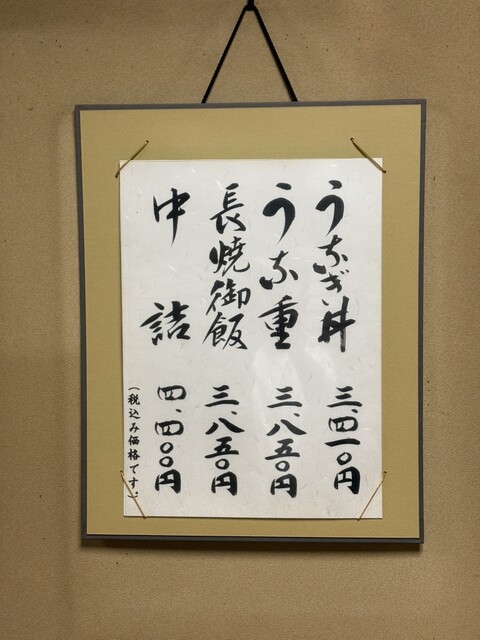 うなぎ丼 三、四一〇円
うな重 三、八五〇円
長焼御飯 三、八五〇円
中詰 四、四〇〇円
（税込み価格です。）